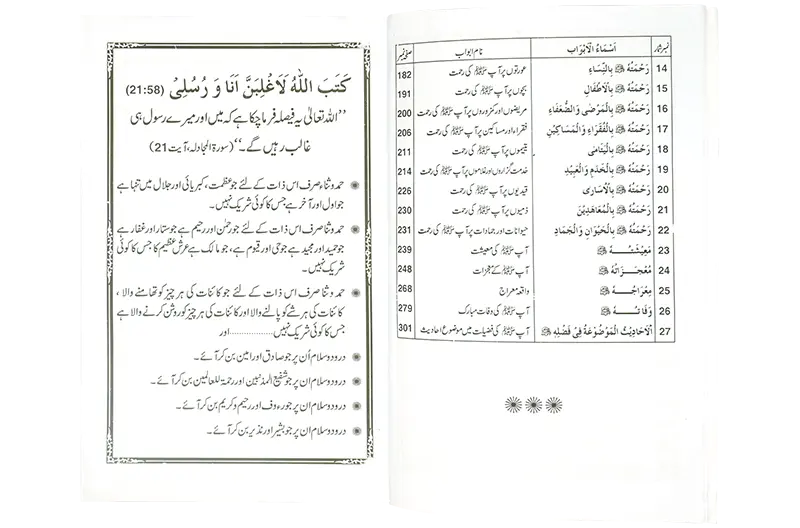 نمبر شمار اَسْمَاءُ الْاَبْوَاب نام ابواب صفحہ نمبر
14 رَحْمَتُهُ ﷺ بِالنِّسَاءِ عورتوں پر آپ ﷺ کی رحمت 182
15 رَحْمَتُهُ ﷺ بِالْاَطْفَالِ بچوں پر آپ ﷺ کی رحمت 191
16 رَحْمَتُهُ ﷺ بِالْمَرْضٰى وَالضُّعَفَاءِ مریضوں اور کمزوروں پر آپ ﷺ کی رحمت 200
17 رَحْمَتُهُ ﷺ بِالْفُقَرَاءِ وَالْمَسَاكِيْنِ فقراء اور مساکین پر آپ ﷺ کی رحمت 206
18 رَحْمَتُهُ ﷺ بِالْيَتَامٰى یتیموں پر آپ ﷺ کی رحمت 211
19 رَحْمَتُهُ ﷺ بِالْخَدَمِ وَالْعَبِيْدِ خدمت گزاروں اور غلاموں پر آپ ﷺ کی رحمت 214
20 رَحْمَتُهُ ﷺ بِالْاُسَارٰى قیدیوں پر آپ ﷺ کی رحمت 226
21 رَحْمَتُهُ ﷺ بِالْمُعَاهَدِيْنَ ذمیوں پر آپ ﷺ کی رحمت 230
22 رَحْمَتُهُ ﷺ بِالْحَيْوَانِ وَالْجَمَادِ حیوانات اور جمادات پر آپ ﷺ کی رحمت 231
23 مَعِيْشَتُـهُ ﷺ آپ ﷺ کی معیشت 239
24 مُعْجِزَاتُهُ ﷺ آپ ﷺ کے معجزات 248
25 مِعْرَاجُـهُ ﷺ واقعہ معراج 268
26 وَفَاتُـهُ ﷺ آپ ﷺ کی وفات مبارک 279
27 اَلْاَحَادِيْثُ الْمَوْضُوْعَةُ فِىْ فَضْلِهِ ﷺ آپ ﷺ کی فضیلت میں موضوع احادیث 301
كَتَبَ اللّٰهُ لَاَغْلِبَنَّ اَنَا وَ رُسُلِىْ (21:58)
’’اللہ تعالیٰ یہ فیصلہ فرما چکا ہے کہ میں اور میرے رسول ہی
غالب رہیں گے۔‘‘ (سورۃ المجادلہ، آیت 21)
حمد و ثنا صرف اس ذات کے لئے جو عظمت، کبریائی اور جلال میں تنہا ہے
جو اول اور آخر ہے جس کا کوئی شریک نہیں۔
حمد و ثنا صرف اس ذات کے لئے جو رحمٰن اور رحیم ہے جو ستار اور غفار ہے
جو حمید اور مجید ہے جو حی اور قیوم ہے، جو مالک ہے عرش عظیم کا جس کا کوئی
شریک نہیں۔
حمد و ثنا صرف اس ذات کے لئے جو کائنات کی ہر چیز کو تھامنے والا،
کائنات کی ہر شے کو پالنے والا اور کائنات کی ہر چیز کو روشن کرنے والا ہے
جس کا کوئی شریک نہیں ............... اور
درود و سلام اُن پر جو صادق اور امین بن کر آئے۔
درود و سلام ان پر جو شفیع المذنبین اور رحمۃ للعالمین بن کر آئے۔
درود و سلام ان پر جو رءوف اور رحیم و کریم بن کر آئے۔
درود و سلام ان پر جو بشیر اور نذیر بن کر آئے۔